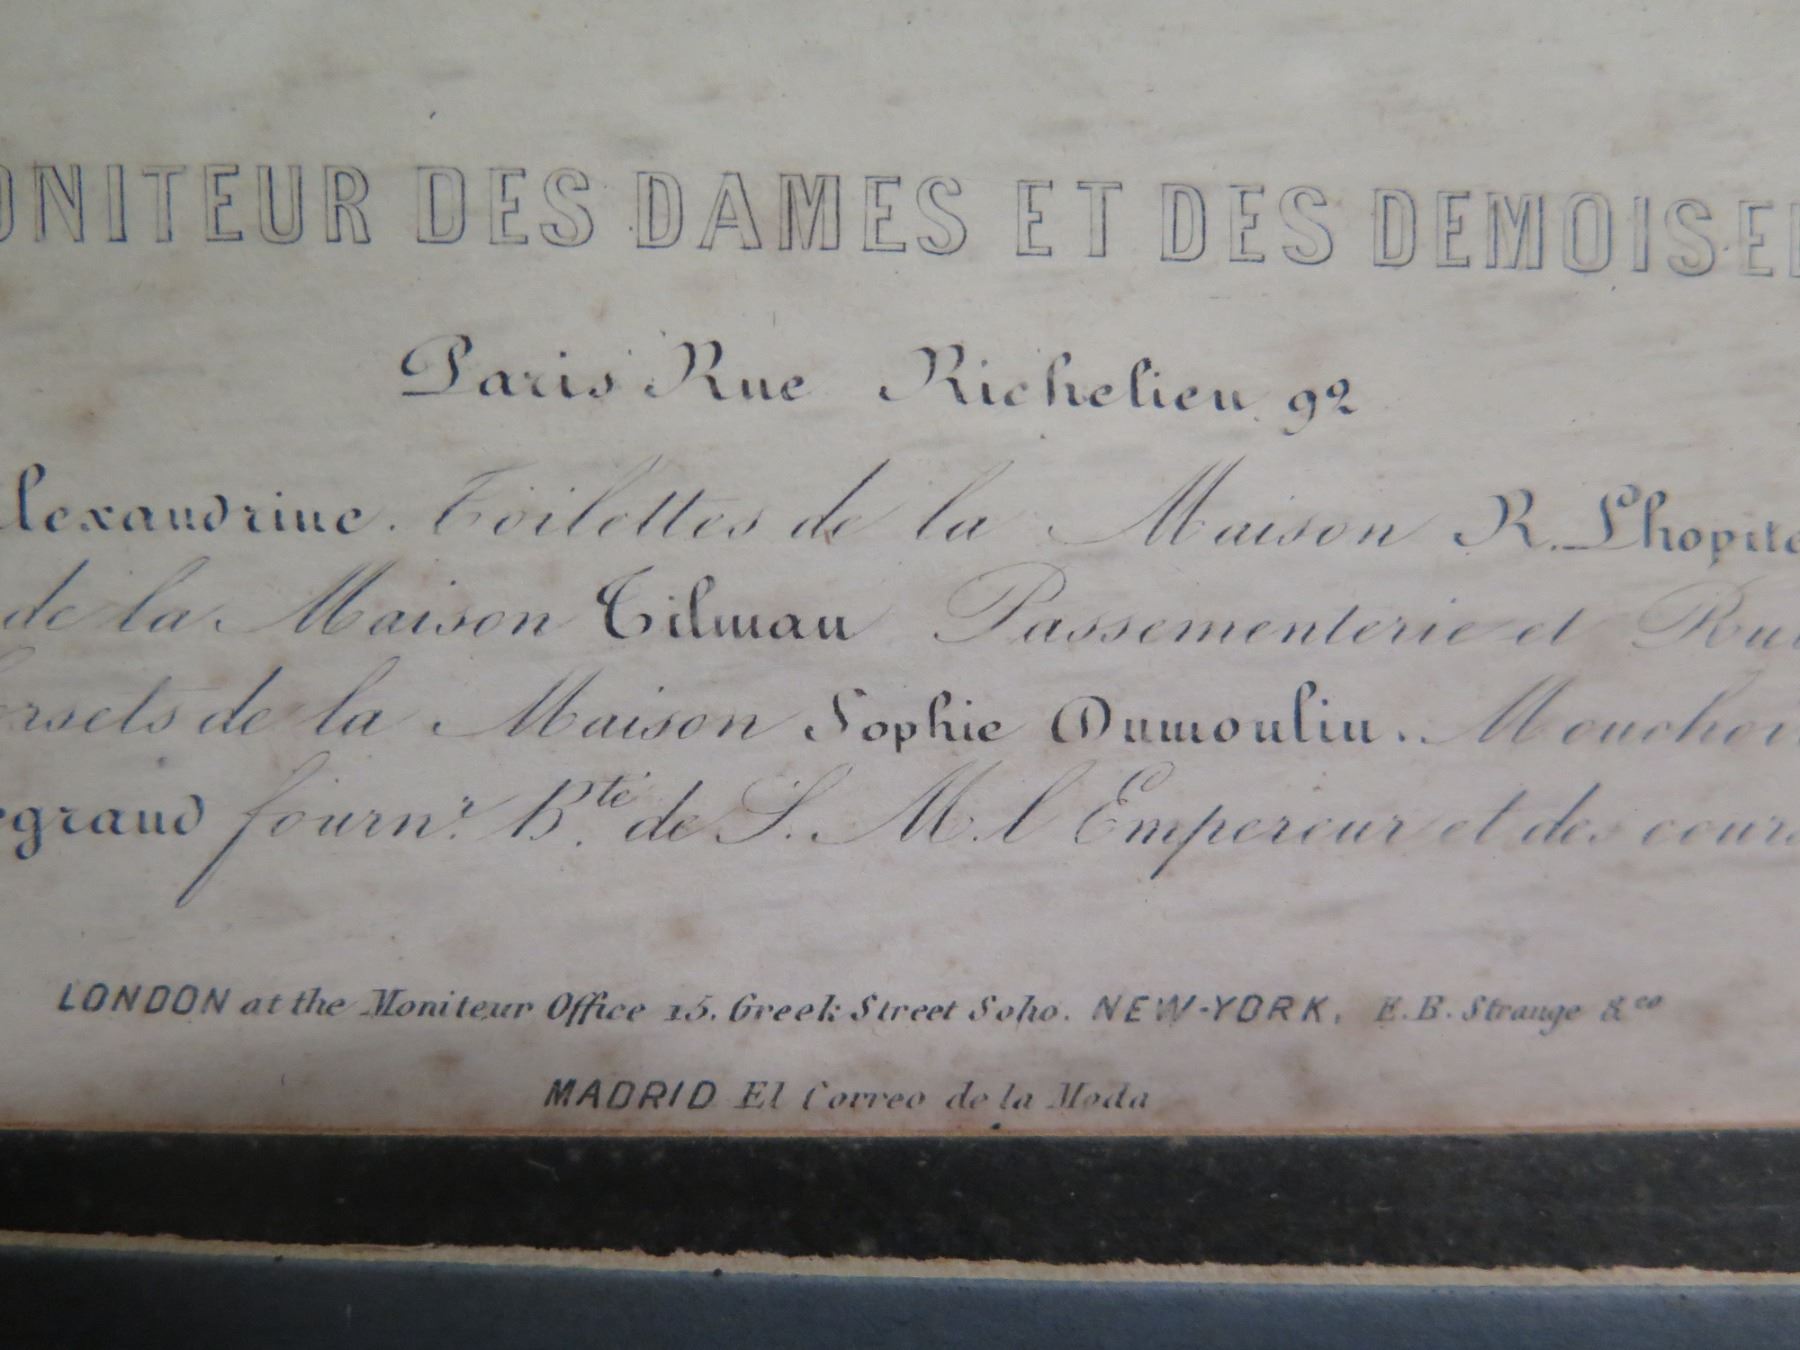 ONITEUR DES DAMES ET DES DEMOISEL
Paris Rue Richelieu 92
lexandrine. Toilettes de la Maison R. Lhopite
de la Maison Tilman Passementerie et Rub
orsets de la Maison Sophie Dumoulin. Mouchoir
egrand fournr. Bté. de S. M. l'Empereur et des cours
LONDON at the Moniteur Office 15. Greek Street Soho. NEW-YORK, E. B. Strange & co
MADRID El Correo de la Moda